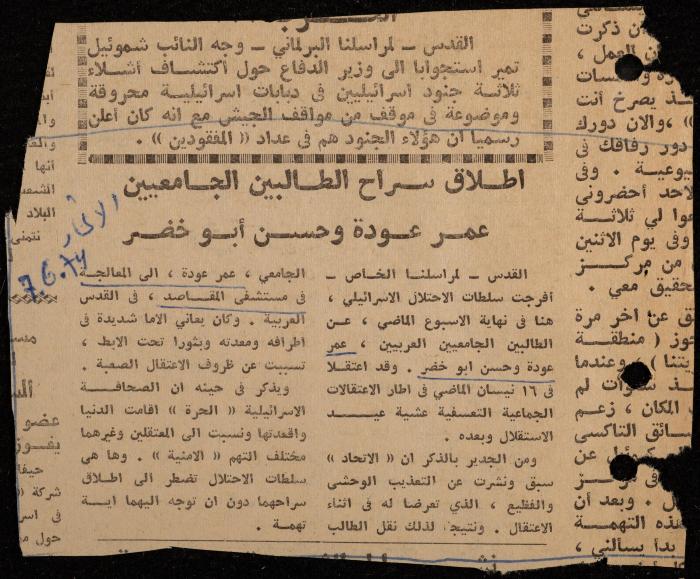 القدس ــ لمراسلنا البرلماني ــ وجه النائب شموئيل
تمير استجوابا الى وزير الدفاع حول أكتشاف أشلاء
ثلاثة جنود اسرائيليين في دبابات اسرائيلية محروقة
وموضوعة في موقف من مواقف الجيش مع انه كان أعلن
رسميا ان هؤلاء الجنود هم في عداد « المفقودين » .
اطلاق سراح الطالبين الجامعيين
عمر عودة وحسن أبو خضر
الاتحاد
7.6.74
القدس ــ لمراسلنا الخاص ــ
أفرجت سلطات الاحتلال الاسرائيلي ،
هنا في نهاية الاسبوع الماضي ، عن
الطالبين الجامعيين العربيين ، عمر
عودة وحسن ابو خضر . وقد اعتقلا
في ١٦ نيسان الماضي في اطار الاعتقالات
الجماعية التعسفية عشية عيد
الاستقلال وبعده .
ومن الجدير بالذكر ان « الاتحاد »
سبق ونشرت عن التعذيب الوحشي
والفظيع ، الذي تعرضا له في اثناء
الاعتقال . ونتيجة لذلك نقل الطالب
الجامعي ، عمر عودة ، الى المعالجة
في مستشفى المقاصد ، في القدس
العربية . وكان يعاني الاما شديدة في
اطرافه ومعدته وبثورا تحت الابط ،
تسببت عن ظروف الاعتقال الصعبة .
ويذكر في حينه ان الصحافة
الاسرائيلية « الحرة » اقامت الدنيا
واقعدتها ونسبت الى المعتقلين وغيرهما
مختلف التهم « الامنية » . وها هي
سلطات الاحتلال تضطر الى اطلاق
سراحهما دون ان توجه اليهما اية
تهمة .
ن ذكرت
العمل ،
يصرخ أنت
» ،والان دورك
دور رفاقك في
يوعية . وفي
لاحد أحضروني
وا لي ثلاثة
وفي يوم الاثنين
من مركز
حقيق معي .
ق عن اخر مرة
حوز ( منطقة
يتنا ) ، وعندما
لم
المكان ، زعم
سائق التاكسي
عن
. وبعد أن
هذه التهمة
بدأ يسألني ،
انها
البلاد
نتمنى
عضو
يفوز
حيفا
شركة «
في اسر
حول م